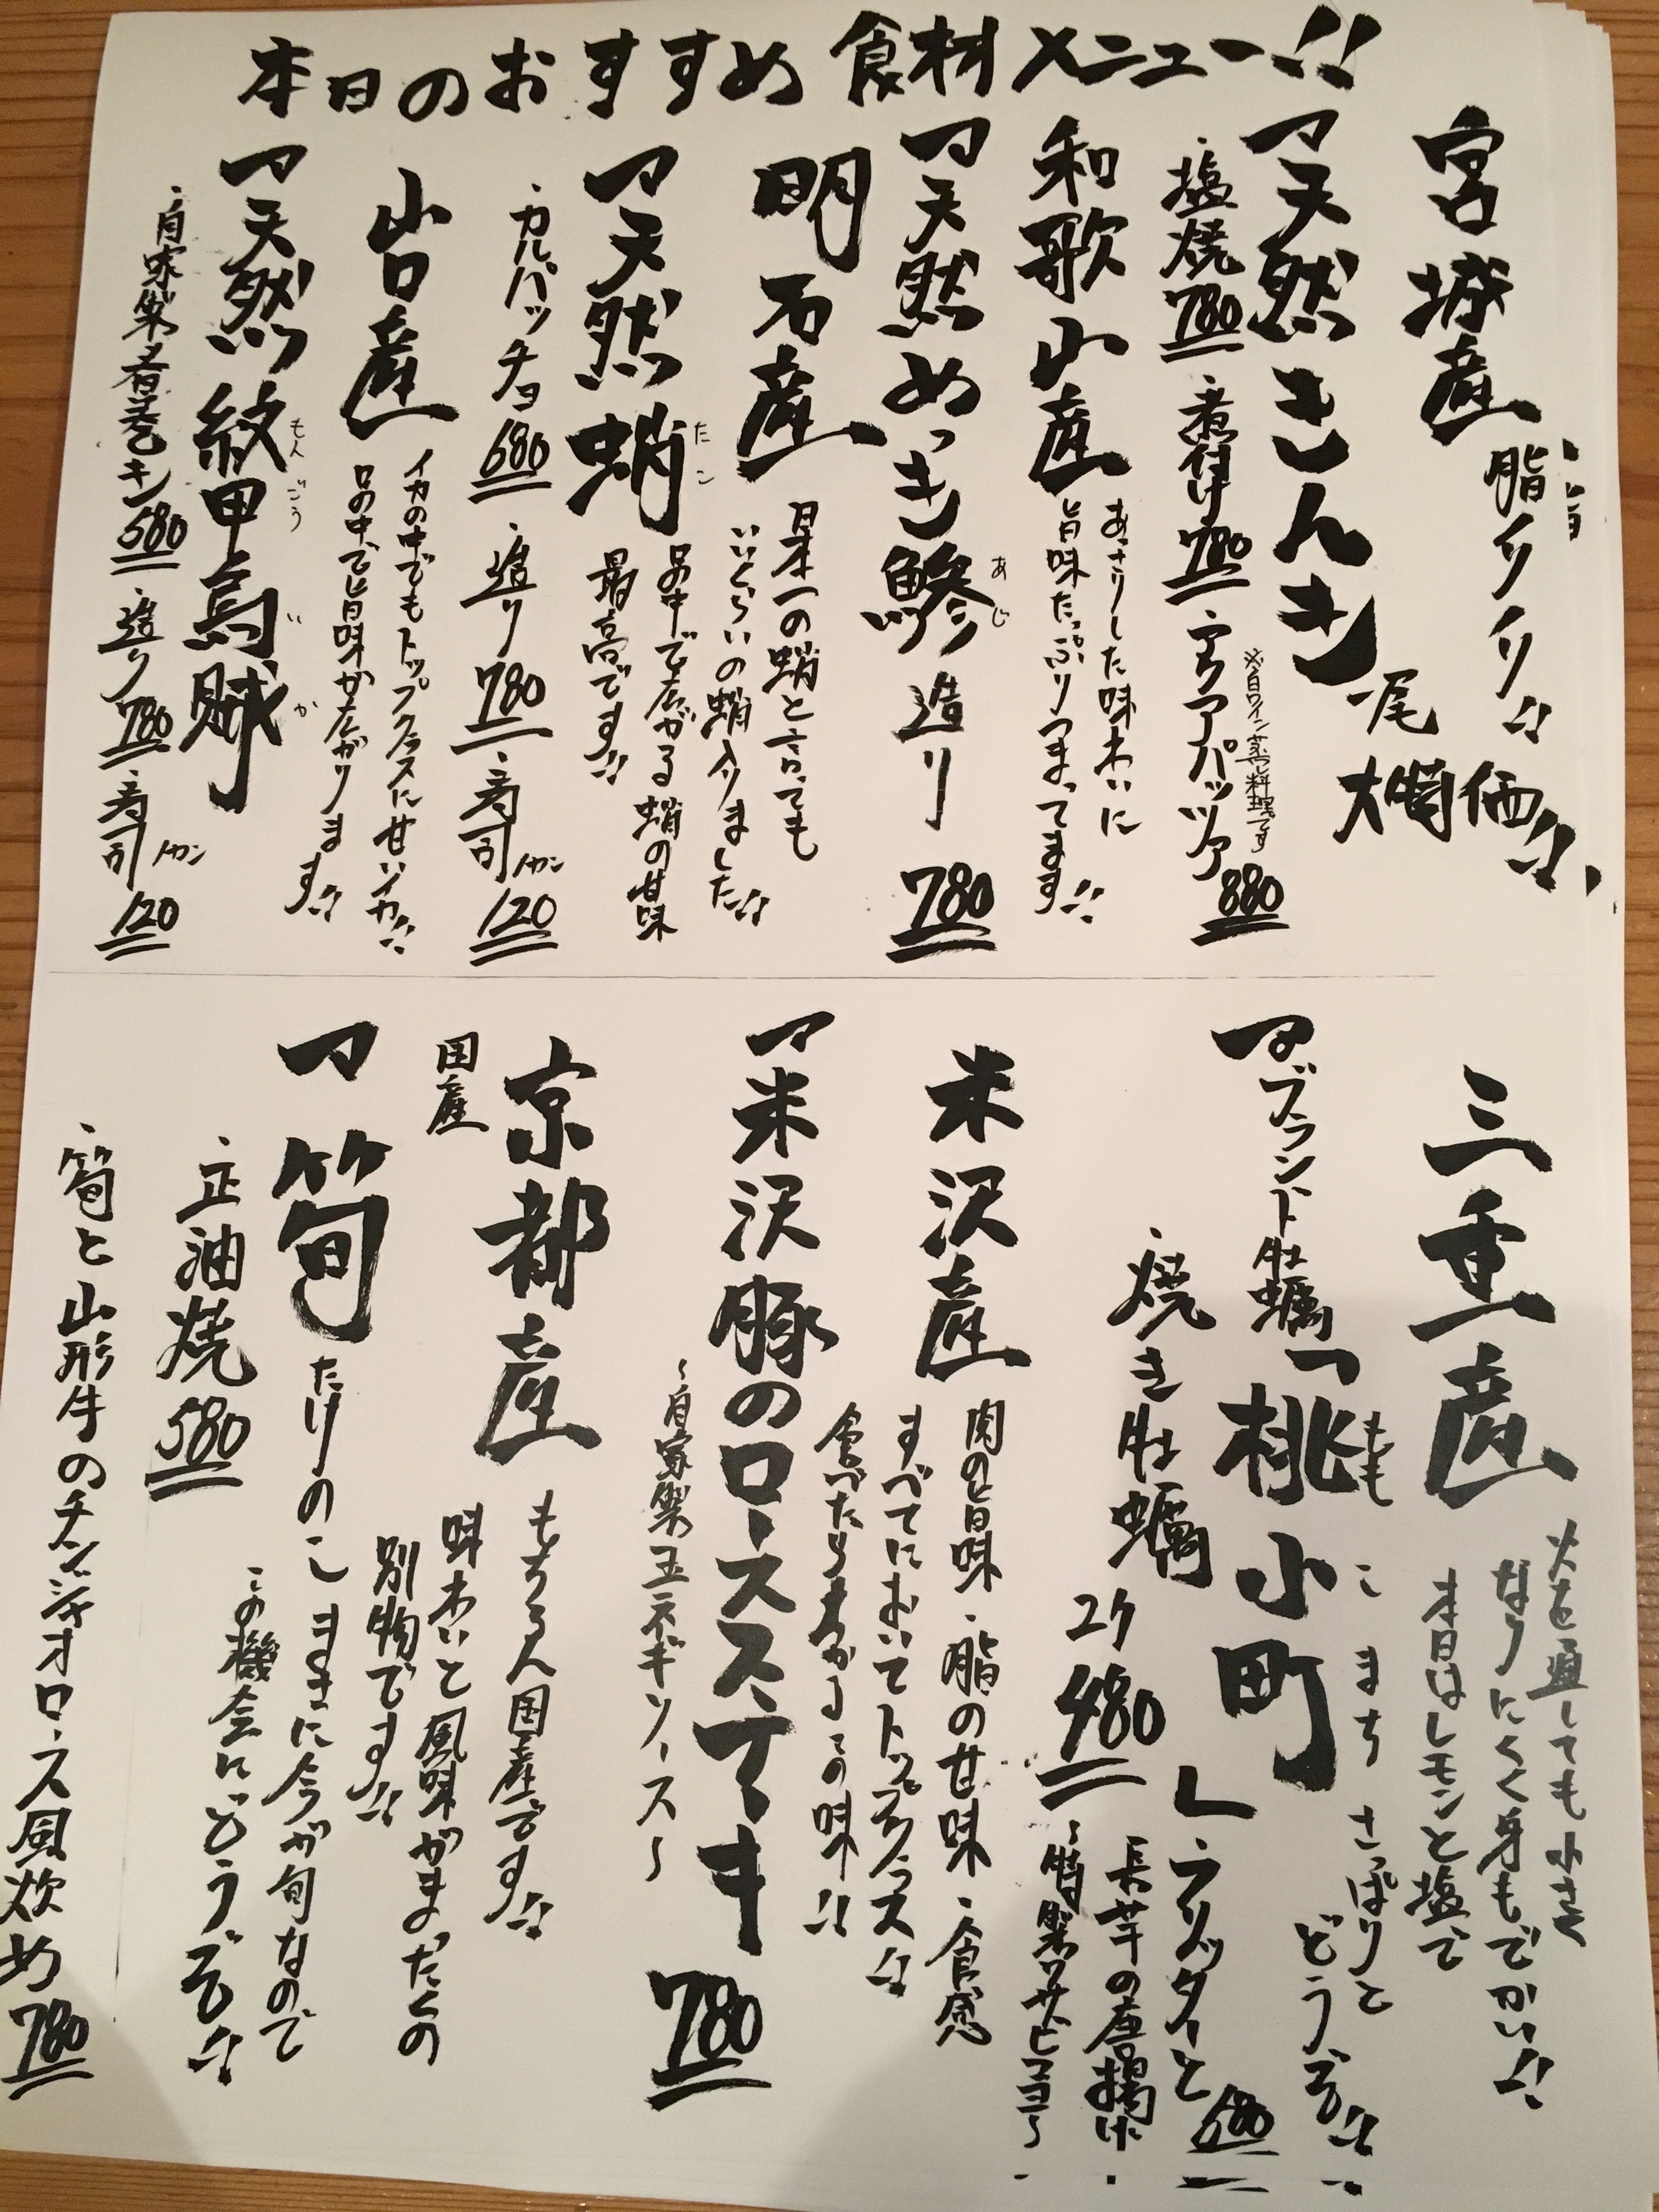 本日のおすすめ食材メニュー!!
宮城産
脂ノリノリ!!
天然きんき
一尾
大特価!!
・塩焼 780
・煮付け 780
・アクアパッツァ 880
※白ワイン蒸し料理です
和歌山産
あっさりした味わいに
旨味たっぷりつまってます!!
天然めっき鯵 造り 780
あじ
明石産
日本一の蛸と言っても
いいくらいの蛸入りました!!
口の中で広がる蛸の甘味
最高です!!
天然蛸
たこ
・カルパッチョ 680
・造り 780
・寿司 一カン 120
山口産
イカの中でもトップクラスに甘いイカ!!
口の中で旨味が広がります!!
天然紋甲烏賊
もんごういか
・自家製 780
・造り 780
・寿司 一カン 120
三重産
火を通しても小さく
なりにくく身もでかい!!
本日はレモンと塩で
さっぱりと
どうぞ!!
ブランド牡蠣「桃小町」
ももこまち
・焼き牡蠣 2ケ 480
・フリッターと
長芋の唐揚げ 680
〜特製ワサビマヨ〜
米沢産
肉の旨味・脂の甘味・食感
すべてにおいてトップクラス!!
食べたらわかるこの味!!
米沢豚のロースステーキ 780
〜自家製玉ネギソース〜
京都産
国産
もちろん国産です!!
味わいと風味がまったくの
別物です!!
筍
たけのこ まさに今が旬なので
この機会にどうぞ!!
・正油焼 580
・筍と山形牛のチンジャオロース風炒め 780